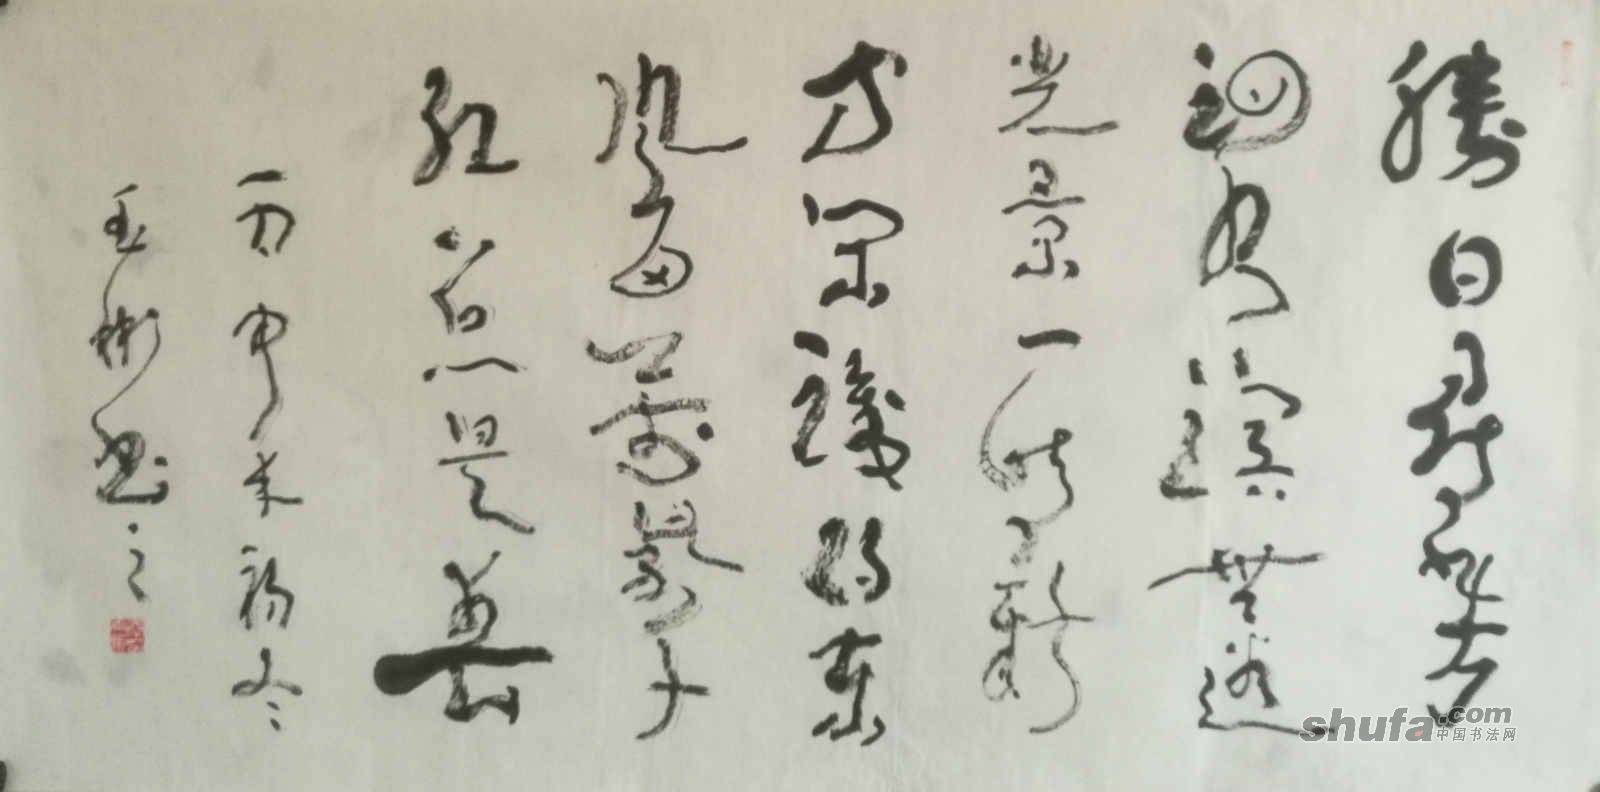 勝日尋芳
泗水濱無邊
光景一時新
等閑識得東
風面萬紫千
紅總是春
丙申年初冬
玉彬書之
shufa.com
中国书法网